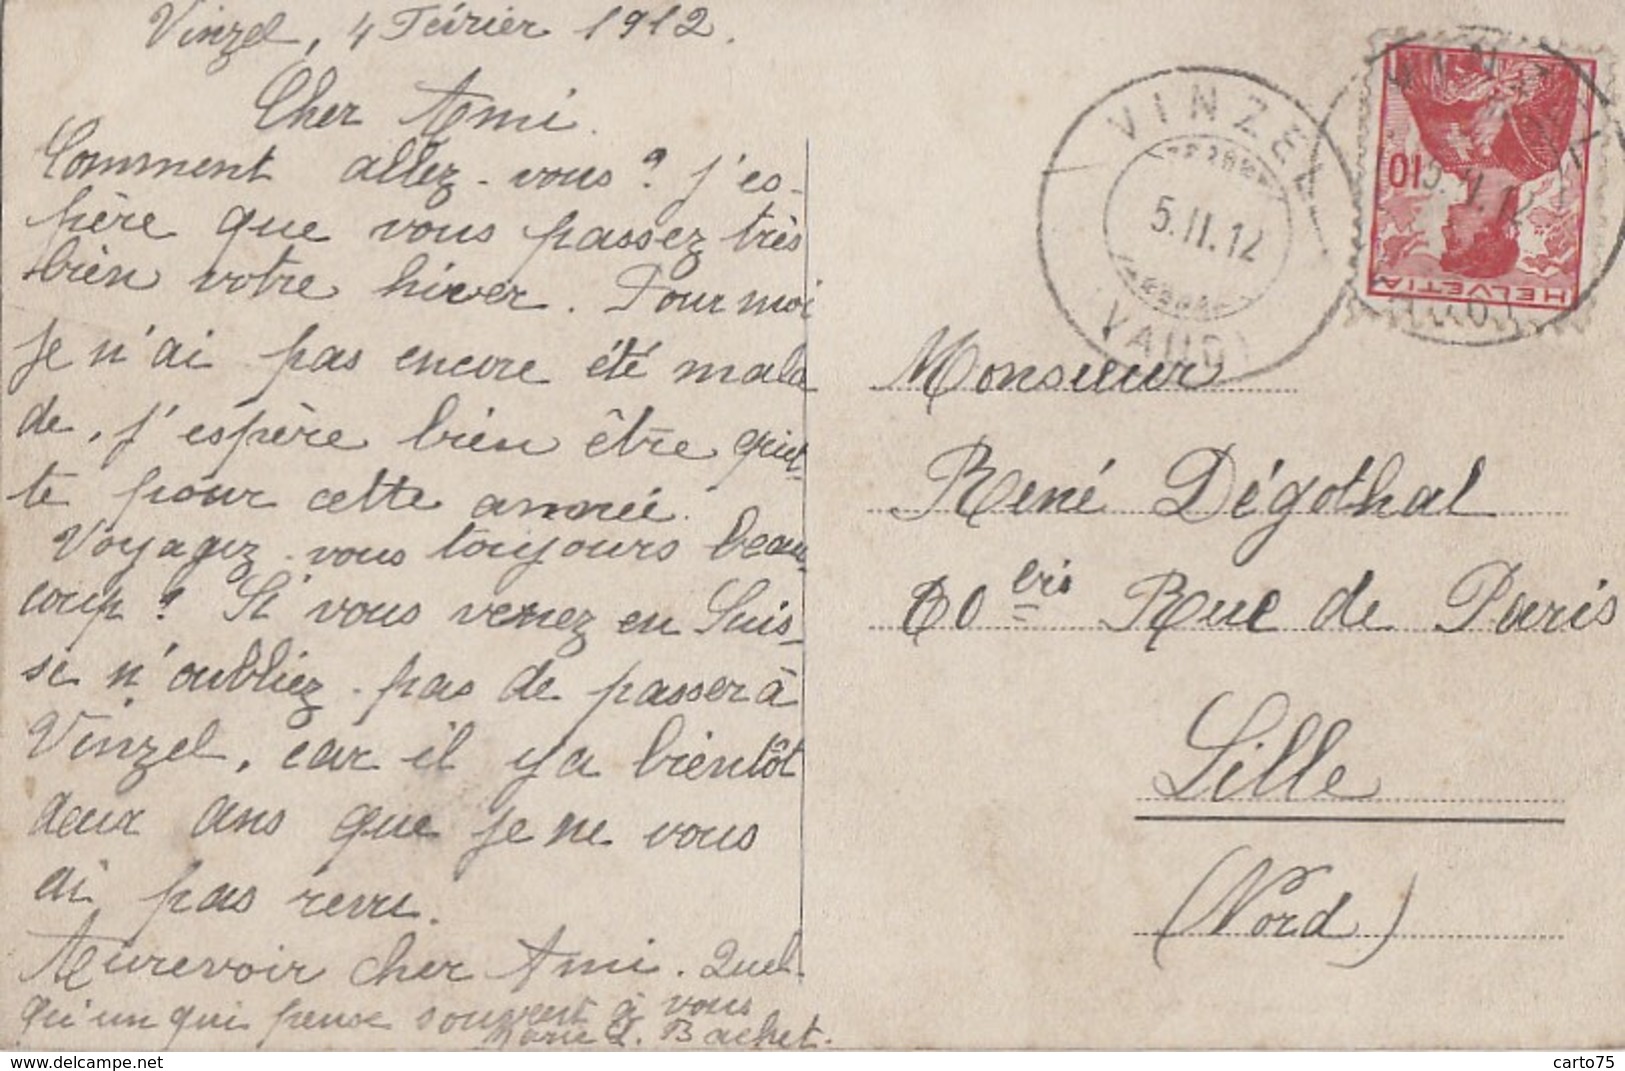 Vinzel, 4 Février 1912.
Cher Ami.
Comment allez-vous? J'es-
père que vous passez très
bien votre hiver. Pour moi
je n'ai pas encore été mala
de, j'espère bien être quit-
te pour cette année.
Voyagez-vous toujours beau-
coup? Si vous venez en Suis-
se n'oubliez-pas de passer à
Vinzel, car il y a bientôt
deux ans que je ne vous
ai pas revu.
Aurevoir cher Ami. Quel-
qu'un qui pense souvent à vous
Marie L. Bachet.
VINZEL
5.II.12
VAUD
HELVETIA
10
Monsieur
René Dégothal
60 bis Rue de Paris
Lille
(Nord)
http://www.delcampe.net
carto75